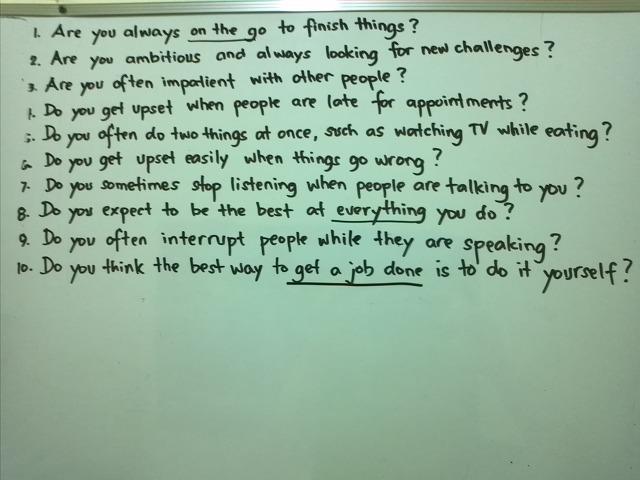 1. Are you always on the go to finish things?
2. Are you ambitious and always looking for new challenges?
3. Are you often impatient with other people?
4. Do you get upset when people are late for appointments?
5. Do you often do two things at once, such as watching TV while eating?
6. Do you get upset easily when things go wrong?
7. Do you sometimes stop listening when people are talking to you?
8. Do you expect to be the best at everything you do?
9. Do you often interrupt people while they are speaking?
10. Do you think the best way to get a job done is to do it yourself?